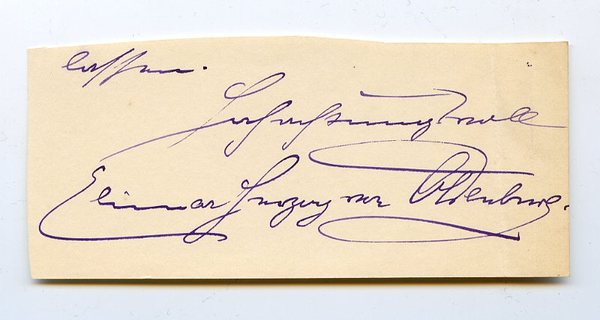 lassen.
Hochachtungsvoll
Elimar Herzog von Oldenburg.